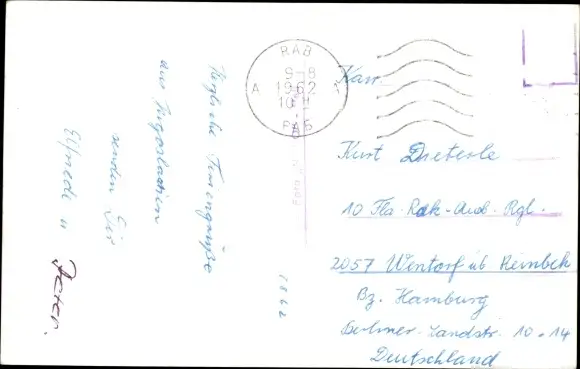 Herzliche Feriengrüße
aus Jugoslawien
senden Dir
Elfriede u
Peter.
1962
RAB
9-8
1962
10 H
A A
РАБ
Foto
Kan.
Kurt Dieterle
10 Fla. Rak.-Ausb.-Rgt.
2057 Wentorf üb Reinbek
Bz. Hamburg
Berliner-Landstr. 10-14
Deutschland